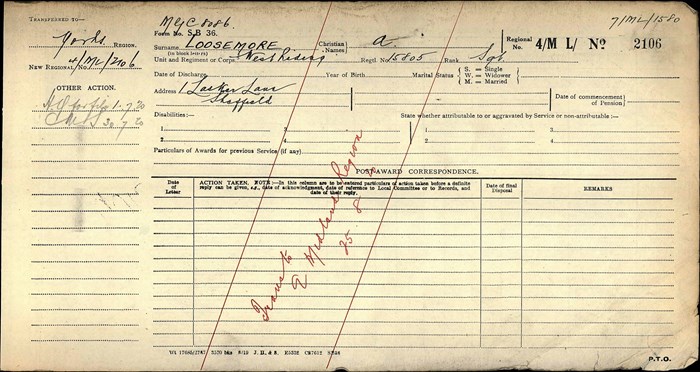 TRANSFERRED TO—
Yorks REGION.
NEW REGIONAL No. 4/ML/2106
OTHER ACTION.
1.7.20
30/7/20
MGC 8286.
7/ML/1580
Form No. S.B 36.
Surname (in block letters) LOOSEMORE Christian Names A. Regional No. 4/M L/ No 2106
Unit and Regiment or Corps West Riding Regtl. No. 15805 Rank Sgt
Date of Discharge Year of Birth Marital Status S. = Single W. = Widower M. = Married
Address 1 Lane Sheffield Date of commencement of Pension
Disabilities:— 1 3 State whether attributable to or aggravated by Service or non-attributable:—
2 4
Particulars of Awards for previous Service (if any)
POST-AWARD CORRESPONDENCE.
Date of Letter
ACTION TAKEN. NOTE:—In this column are to be entered particulars of action taken before a definite reply can be given, e.g., date of acknowledgment, date of reference to Local Committee or to Records, and date of their reply.
Date of final Disposal
REMARKS
Trans to E Midland Region
25. 8
P.T.O.